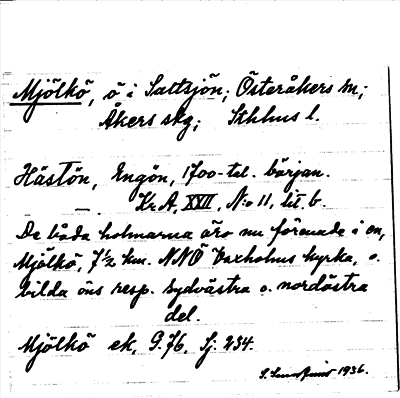 Mjölkö, ö i Saltsjön; Österåkers sn;
Åkers skg; Sthlms l.
Hästön, Engön, 1700-tal. början.
— " — Kr.A, XXII, N:o 11, lit. b.
De båda holmarna äro nu förenade i en,
Mjölkö, 7½ km. NNÖ Vaxholms kyrka, o.
bilda öns resp. sydvästra o. nordöstra
del.
Mjölkö ek. G.76, Sj: 234.
1936.